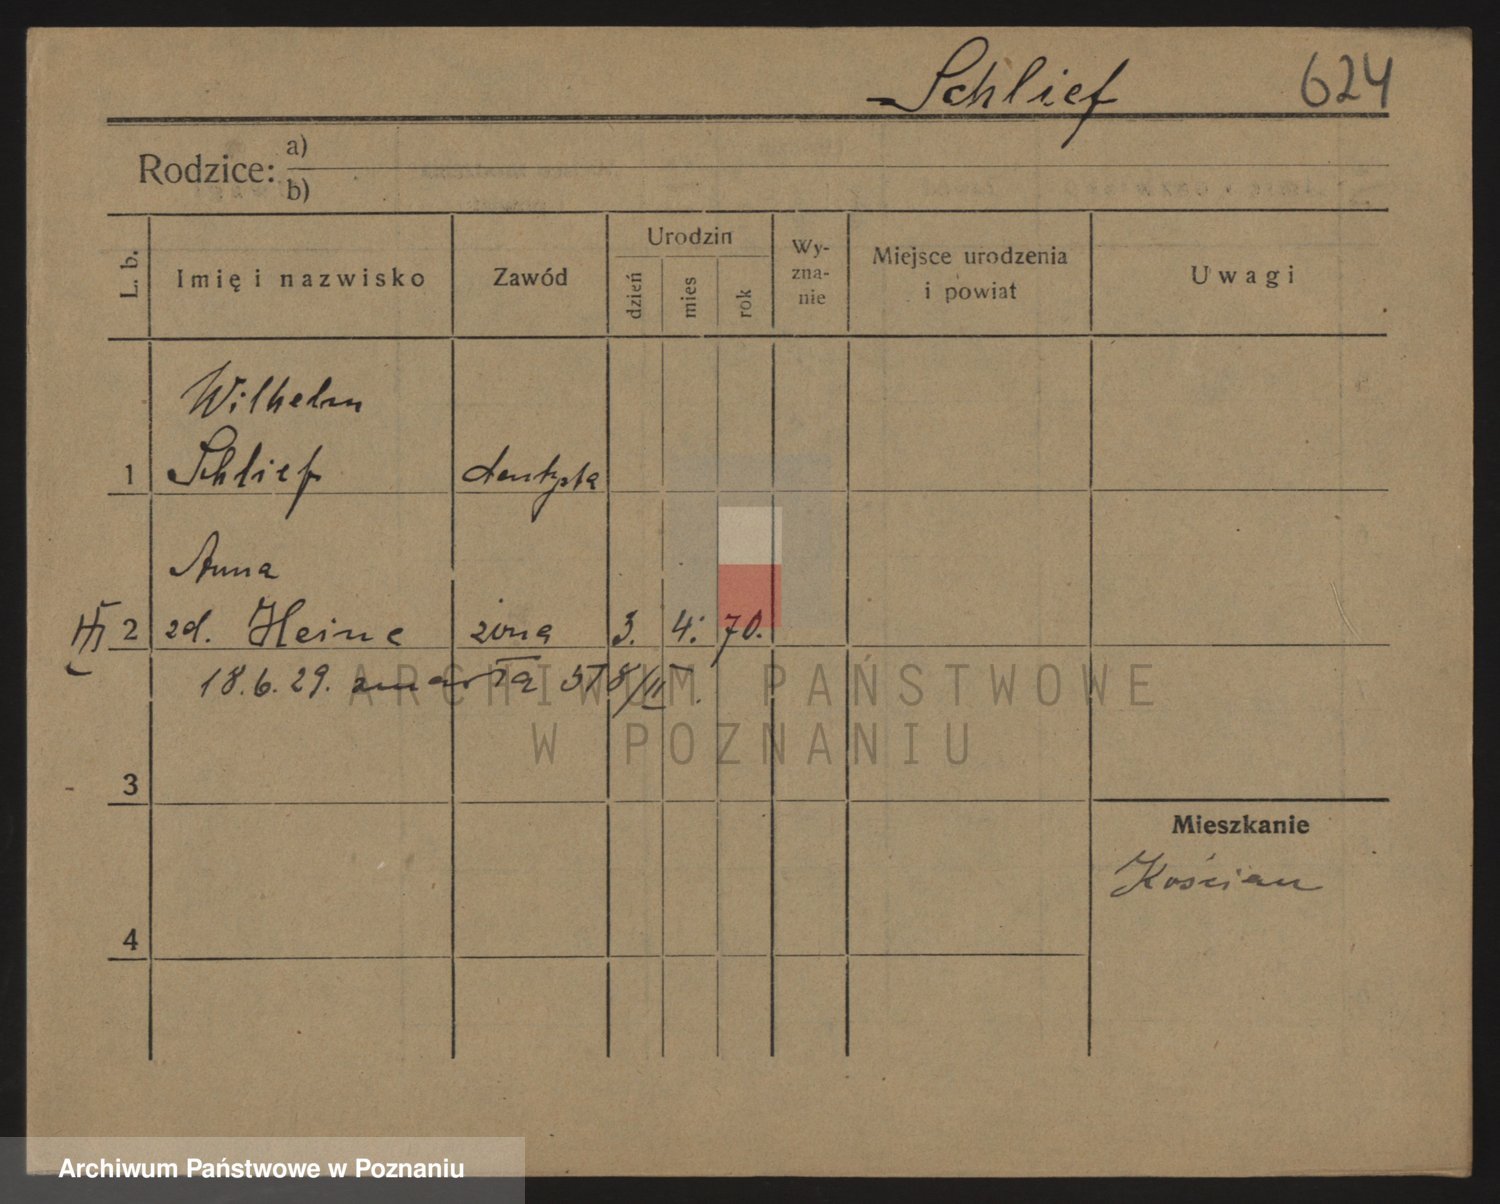 Schlief 624
Rodzice: a)
b)
L. b. Imię i nazwisko Zawód Urodzin dzień mies rok Wy-zna-nie Miejsce urodzenia i powiat Uwagi
Wilhelm
1 Schlief dentysta
Anna
2 zd. Heine żona 3. 4. 70.
18.6.29. zmarła
ARCHIWUM PAŃSTWOWE
W POZNANIU
3
Mieszkanie
Kościan
4
Archiwum Państwowe w Poznaniu